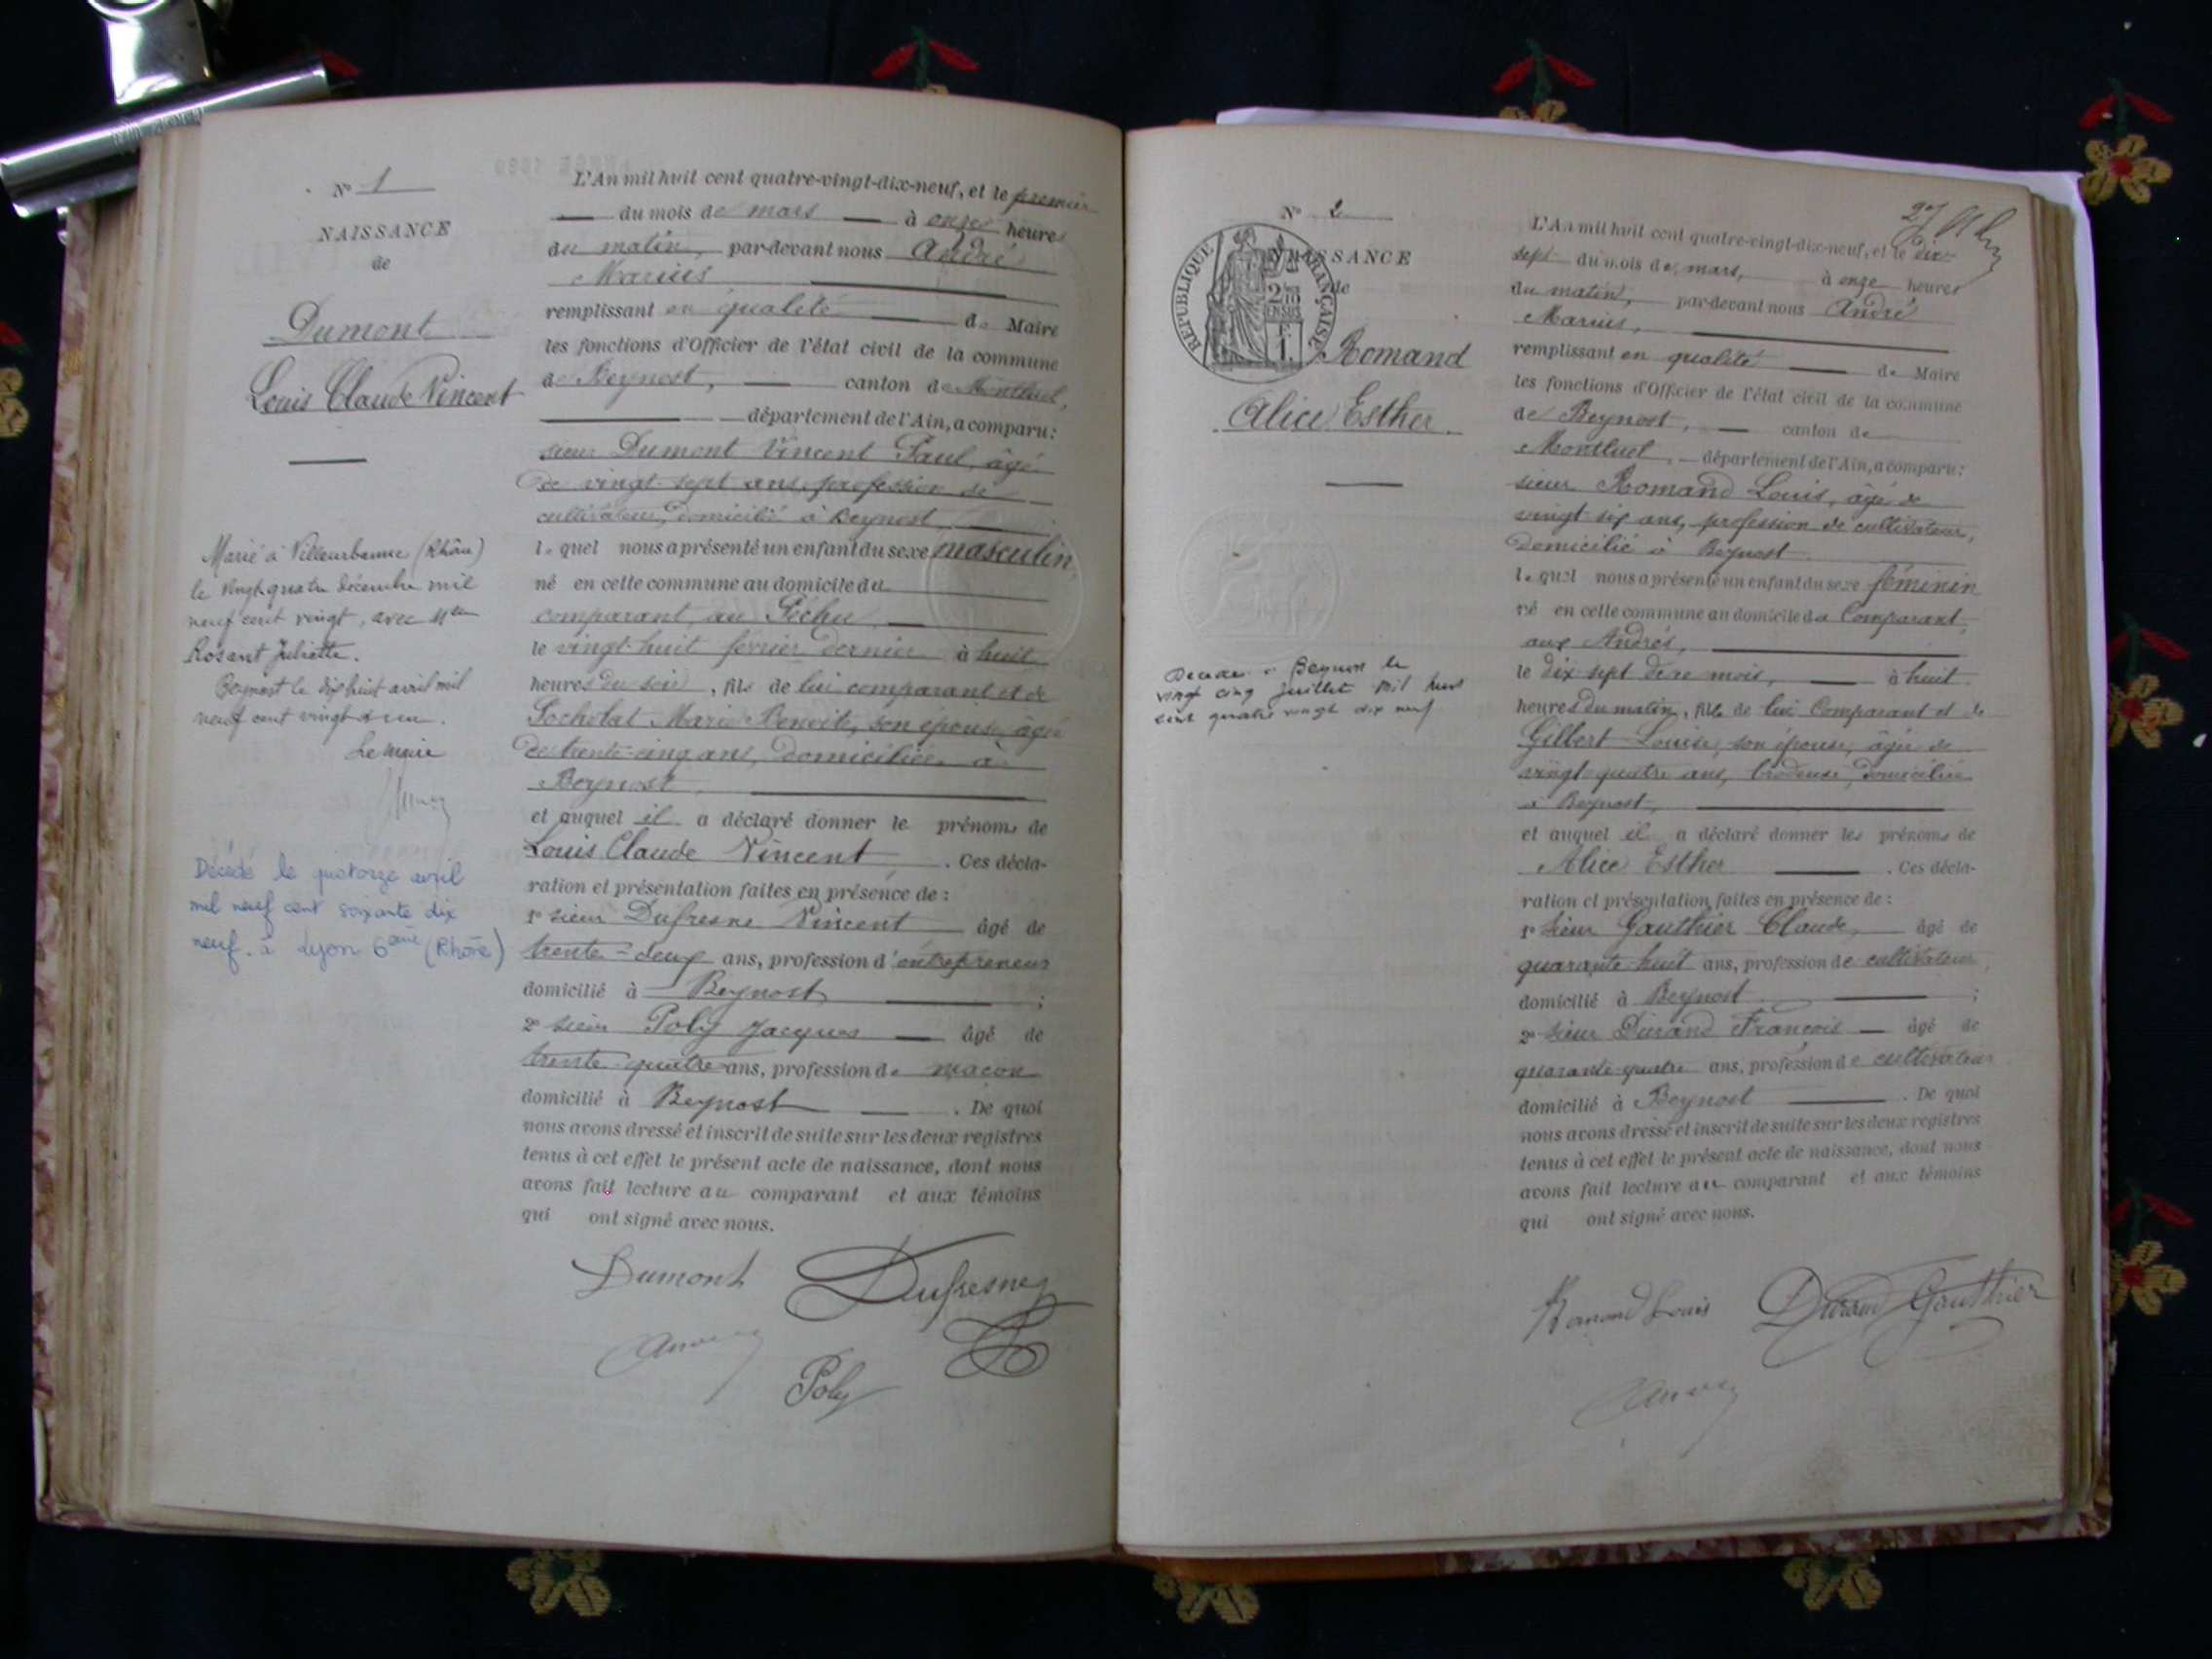 N° 1
NAISSANCE
de
Dumont
Louis Claude Vincent
Marié à Villeurbanne (Rhône)
le vingt quatre décembre mil
neuf cent vingt, avec Mlle
Rosant Juliette.
Beynost le dix huit avril mil
neuf cent vingt et un.
Le maire
Décédé le quatorze avril
mil neuf cent soixante dix
neuf. à Lyon 6ème (Rhône)
L'An mil huit cent quatre-vingt-dix-neuf, et le premier
du mois de mars à onze heures
du matin, par-devant nous André
Marius
remplissant en qualité de Maire
les fonctions d'Officier de l'état civil de la commune
de Beynost, canton de Montluel,
département de l'Ain, a comparu:
sieur Dumont Vincent Paul, âgé
de vingt-sept ans, profession de
cultivateur, domicilié à Beynost
lequel nous a présenté un enfant du sexe masculin
né en cette commune au domicile du
comparant, au Péchu
le vingt-huit février dernier à huit
heures du soir, fils de lui comparant et de
Pochotat Marie Benoite, son épouse, âgée
de trente-cinq ans, domiciliée à
Beynost
et auquel il a déclaré donner le prénoms de
Louis Claude Vincent. Ces décla-
ration et présentation faites en présence de :
1° sieur Dufresne Vincent âgé de
trente-deux ans, profession d'entrepreneur
domicilié à Beynost ;
2° sieur Poly Jacques âgé de
trente-quatre ans, profession de maçon
domicilié à Beynost. De quoi
nous avons dressé et inscrit de suite sur les deux registres
tenus à cet effet le présent acte de naissance, dont nous
avons fait lecture au comparant et aux témoins
qui ont signé avec nous.
Dumont Dufresne
Poly
N° 2
NAISSANCE
de
RÉPUBLIQUE FRANÇAISE
2/10 EN SUS
F.
1.
Romand
Alice Esther.
Décédée à Beynost le
vingt cinq juillet mil huit
cent quatre vingt dix neuf
L'An mil huit cent quatre-vingt-dix-neuf, et le dix-
sept du mois de mars, à onze heures
du matin, par-devant nous André
Marius,
remplissant en qualité de Maire
les fonctions d'Officier de l'état civil de la commune
de Beynost, canton de
Montluel, département de l'Ain, a comparu:
sieur Romand Louis, âgé de
vingt six ans, profession de cultivateur,
domicilié à Beynost
lequel nous a présenté un enfant du sexe féminin
né en cette commune au domicile du Comparant,
aux Andrés,
le dix sept de ce mois, à huit
heures du matin, fille de lui Comparant et de
Gilbert Louise, son épouse, âgée de
vingt-quatre ans, brodeuse, domiciliée
à Beynost,
et auquel il a déclaré donner les prénoms de
Alice Esther. Ces décla-
ration et présentation faites en présence de :
1° sieur Gauthier Claude, âgé de
quarante-huit ans, profession de cultivateur,
domicilié à Beynost ;
2° sieur Durand François âgé de
quarante-quatre ans, profession de cultivateur
domicilié à Beynost. De quoi
nous avons dressé et inscrit de suite sur les deux registres
tenus à cet effet le présent acte de naissance, dont nous
avons fait lecture au comparant et aux témoins
qui ont signé avec nous.
Romand Louis Durand Gauthier